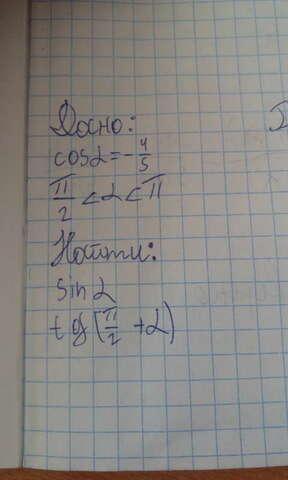 Дано:
cosα=-4/5
π/2 <α<π
Найти:
sinα
tg(π/2 +α)